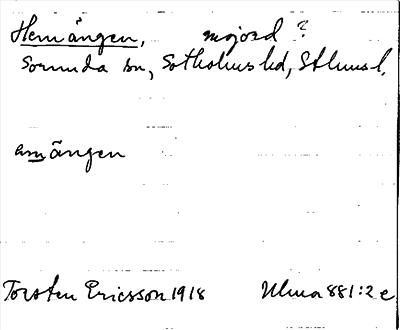 Hemängen, mojord ?
Sorunda sn, Sotholms hd, Sthms l,
emängen
Torsten Ericsson 1918 Ulma 881:2 c